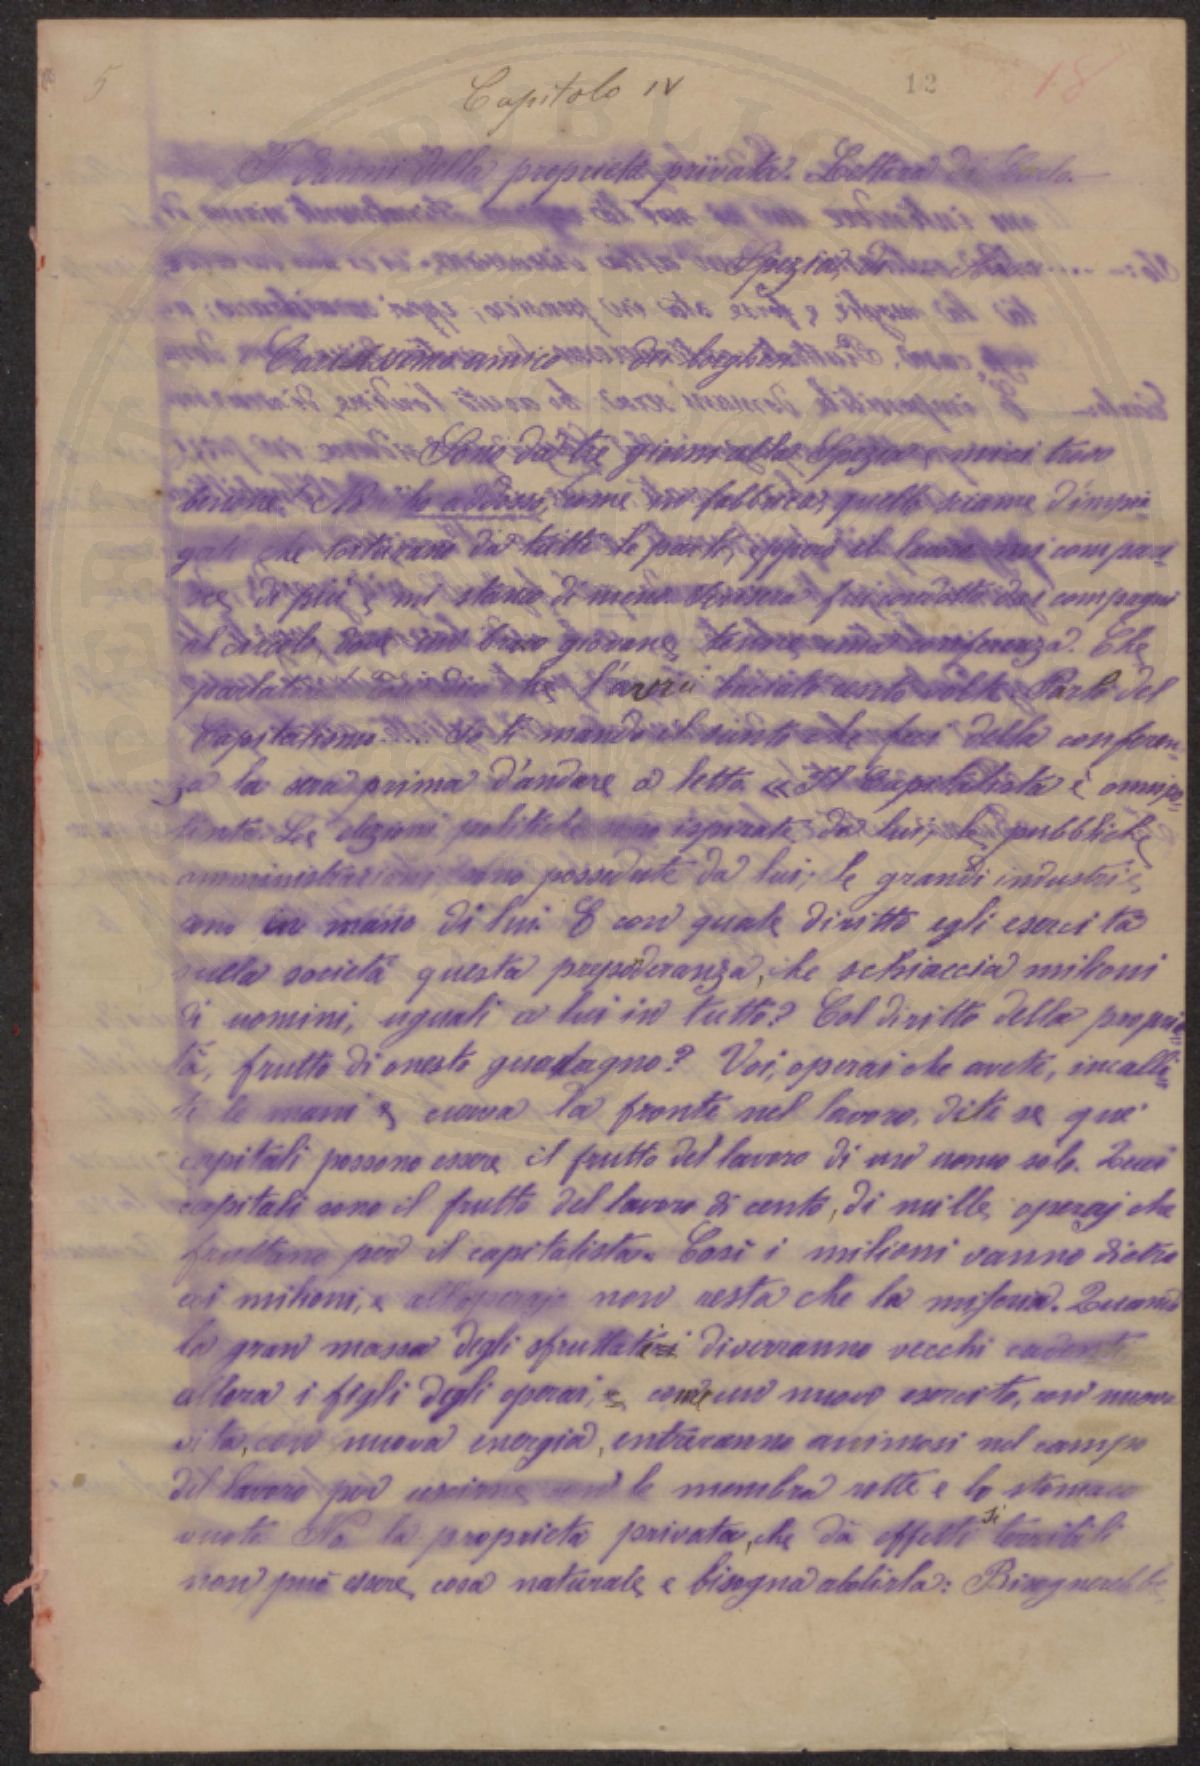 5 Capitolo IV 12 18
I danni della proprietà privata. Lettera di Carlo.
Spezia,
Carissimo amico
Sono da tre giorni alla Spezia e mi ci trovo
benone. ho addosso, come in fabbrica, quello sciame d'impie
gati che torturano da tutte le parti, eppoi il lavoro mi compa
di più e mi stanco di meno. fui condotto dai compagni
al circolo dove un bravo giovane tenne una conferenza. Che
che l'avrei baciato cento volte. Parlò del
Capitalismo. Io ti mando il sunto che feci della conferen-
za la sera prima d'andare a letto. « Il Capitalista è onnipo-
tente. Le elezioni politiche sono ispirate da lui; le pubbliche
amministrazioni sono possedute da lui; le grandi industrie
sono in mano di lui. E con quale diritto egli esercita
sulla società questa prepoderanza, che schiaccia milioni
di uomini, uguali a lui in tutto? Col diritto della proprie-
tà, frutto di onesto guadagno? Voi, operai che avete, incalli-
te le mani e curva la fronte nel lavoro, dite se que'
capitali possono essere il frutto del lavoro di un uomo solo. Quei
capitali sono il frutto del lavoro di cento, di mille operaj che
fruttano per il capitalista. Così i milioni vanno dietro
ai milioni, e all'operajo non resta che la miseria. Quando
la gran massa degli sfruttati diverranno vecchi cadenti
allora i figli degli operai, come un nuovo esercito, con nuova
vita, con nuova energia, entreranno animosi nel campo
del lavoro per uscirne con le membra rotte e lo stomaco
vuoto. Ma la proprietà privata, che dà effetti sì terribili
non può essere cosa naturale e bisogna abolirla: Bisognerebbe